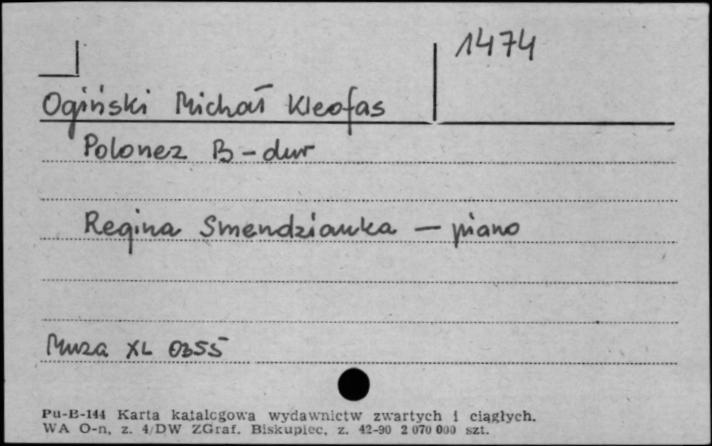 1474
Ogiński Michał Kleofas
Polonez B-dur
Regina Smendzianka — piano
Muza XL 0355
Pu-B-144 Karta katalogowa wydawnictw zwartych i ciągłych.
WA O-n, z. 4/DW ZGraf. Biskupiec, z. 42-90 2 070 000 szt.